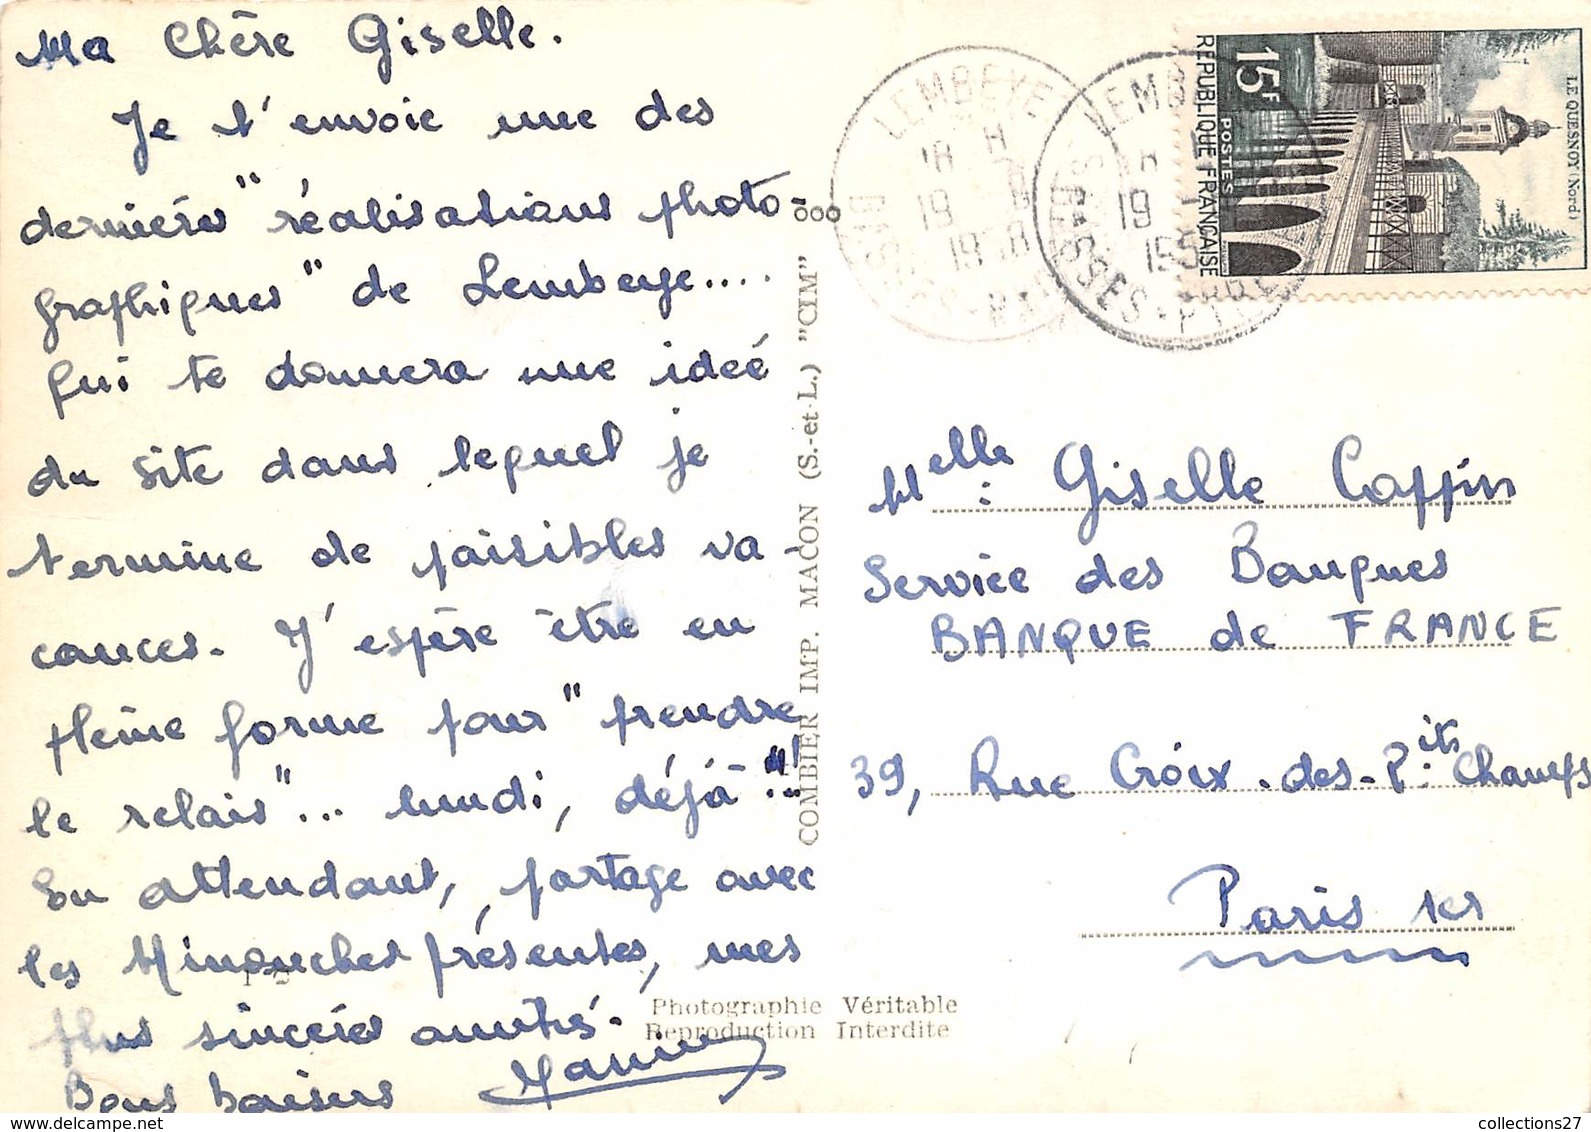 Ma Chère Giselle.
Je t'envoie une des
dernières "réalisations photo-
graphiques" de Lembeye....
qui te donnera une ideé
du site dans lequel je
termine de paisibles va-
cances. J'espère être en
pleine forme pour "prendre
le relais"... lundi, déjà!..."
En attendant, partage avec
les Minouches présentes, mes
plus sincères amitiés.
Bons baisers
ooo
COMBIER IMP. MACON (S.-et-L.) "CIM"
Photographie Véritable
Reproduction Interdite
LEMBEYE
18 H
19
1958
BASSES-PYR
LEMB
19
195
BASSES-PYRE
15F
POSTES
REPUBLIQUE FRANÇAISE
LE QUESNOY (Nord)
Melle: Giselle Cappin
Service des Banques
BANQUE de FRANCE
39, Rue Croix-des-P.its Champs
Paris 1er
www.delcampe.net
collections27